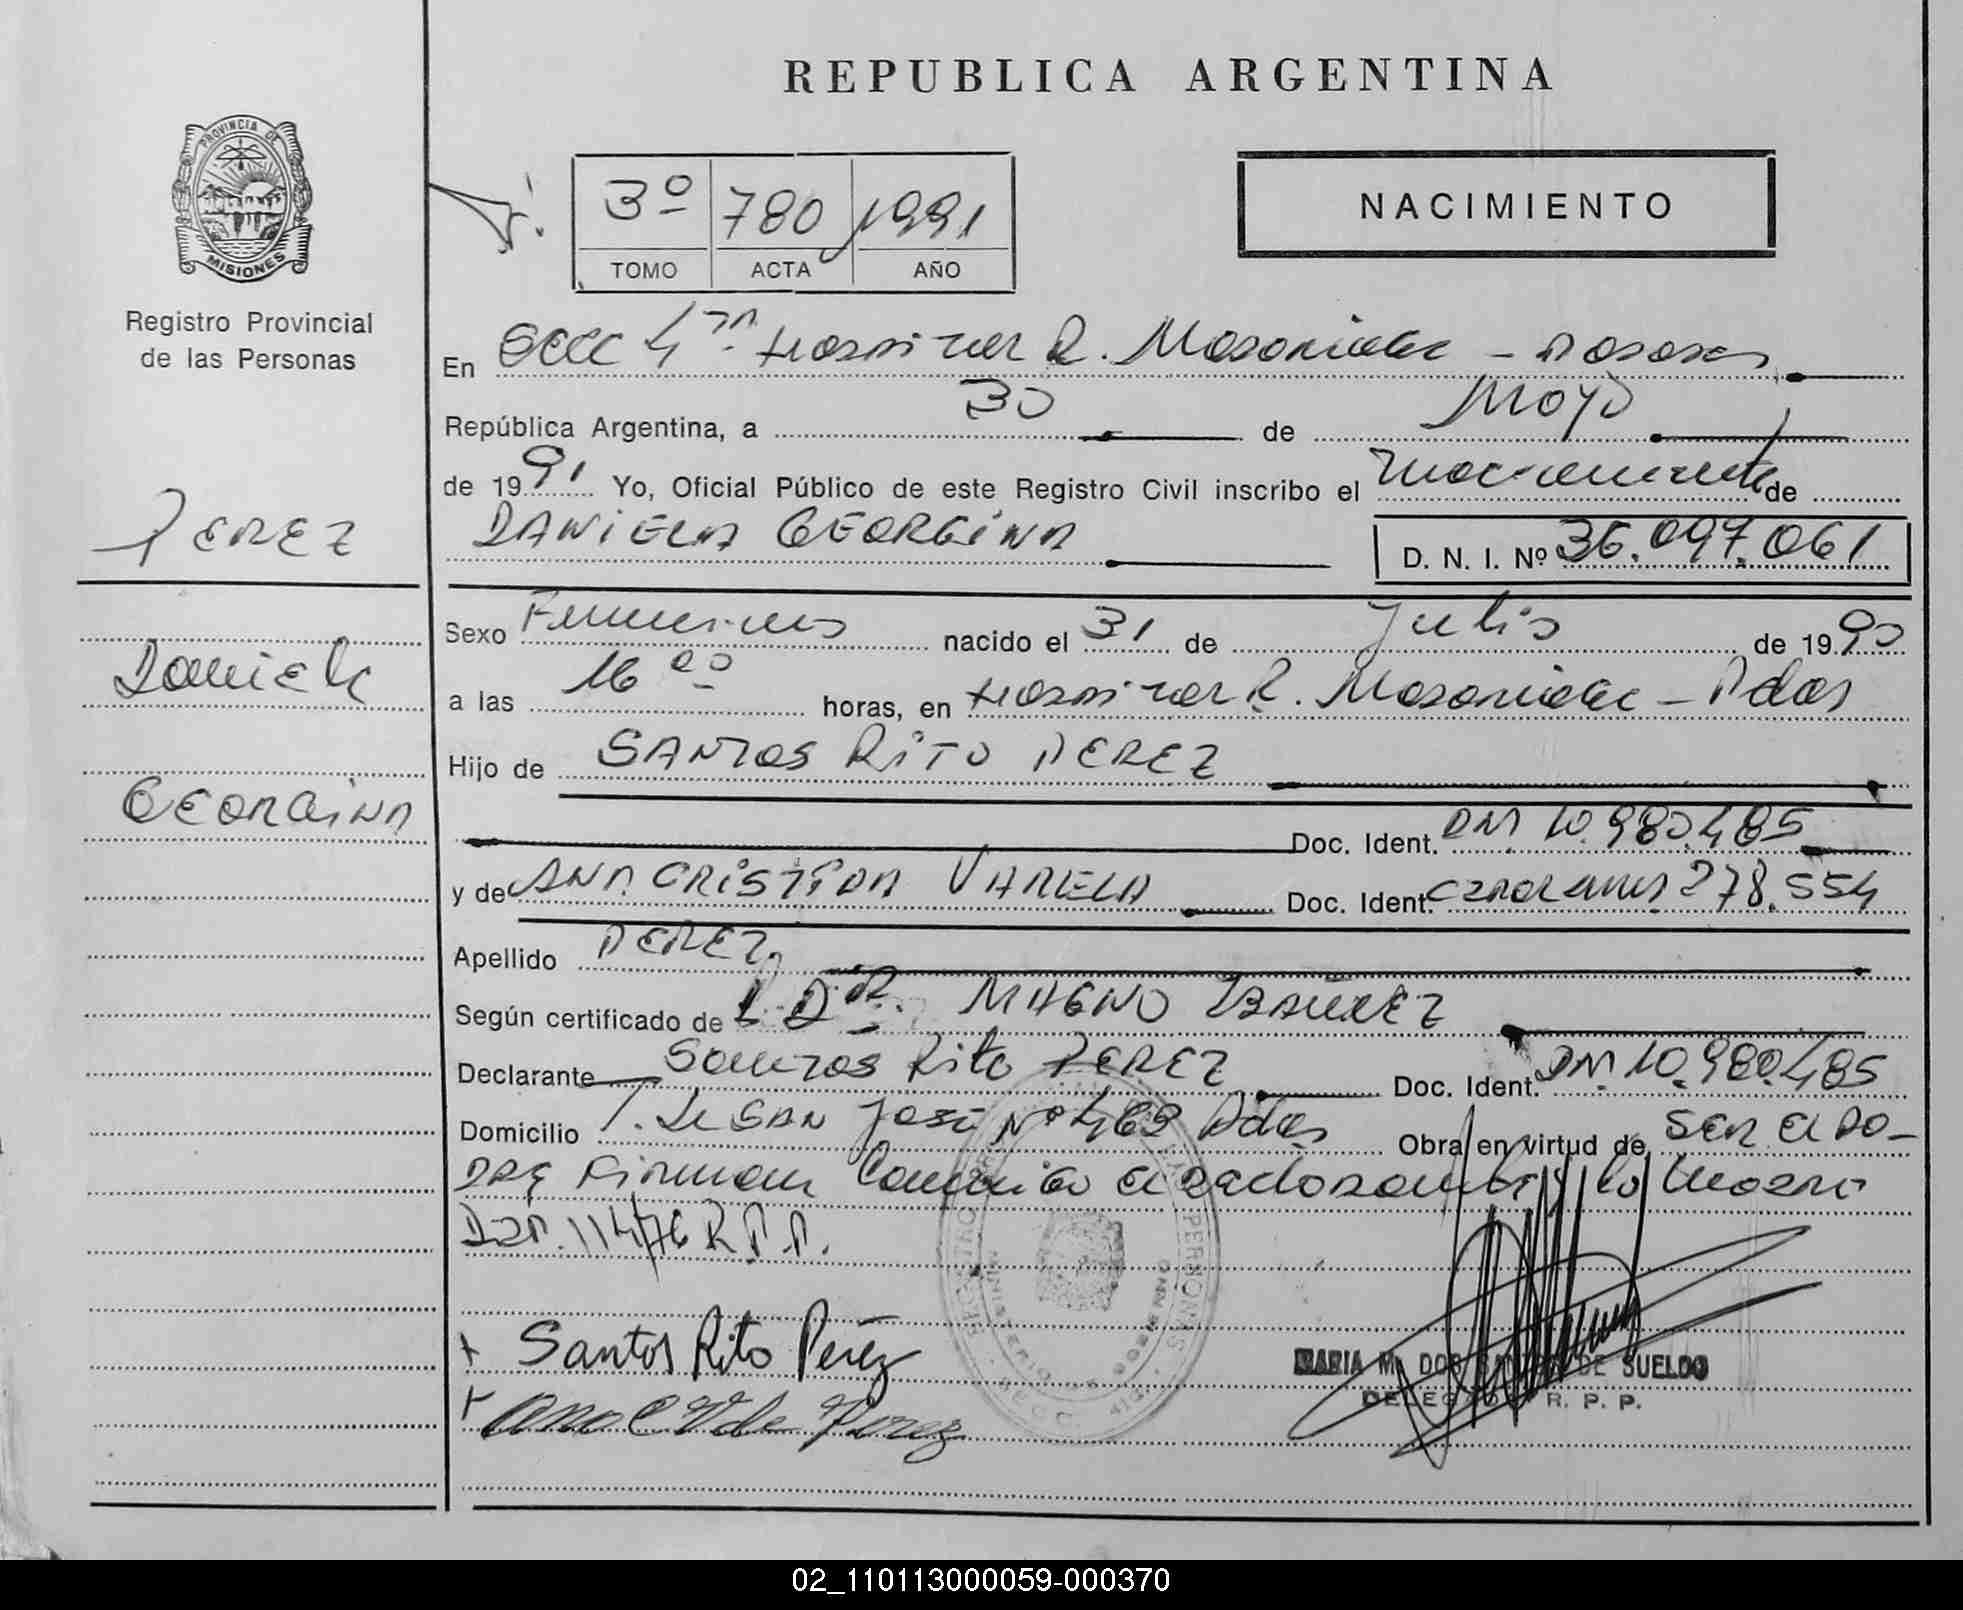 REPUBLICA ARGENTINA
PROVINCIA DE MISIONES
Registro Provincial
de las Personas
3º 780 1991
TOMO ACTA AÑO
NACIMIENTO
En Secc 4ta Hospital R. Madariaga - Posadas
República Argentina, a 30 de Mayo
de 1991 Yo, Oficial Público de este Registro Civil inscribo el nacimiento de
DANIELA GEORGINA
D. N. I. Nº 36.097.061
PEREZ
Daniela
GEORGINA
Sexo Femenino nacido el 31 de Julio de 1990
a las 16 00 horas, en Hospital R. Madariaga - Pdas
Hijo de SANTOS RITO PEREZ
Doc. Ident. DNI 10.980.485
y de ANA CRISTINA VARELA Doc. Ident. 278.554
Apellido PEREZ
Según certificado de Dr. MAGNO IBAÑEZ
Declarante Santos Rito PEREZ Doc. Ident. DNI 10.980.485
Domicilio SAN José Nº 469 Pdas Obra en virtud de ser el PA-
DRE Firman la madre
Disp. 114/76 R.P.P.
Santos Rito Pérez
Ana C V de Perez
MARIA M. DOS SANTOS DE SUELDO
DELEGADA R. P. P.
02_110113000059-000370